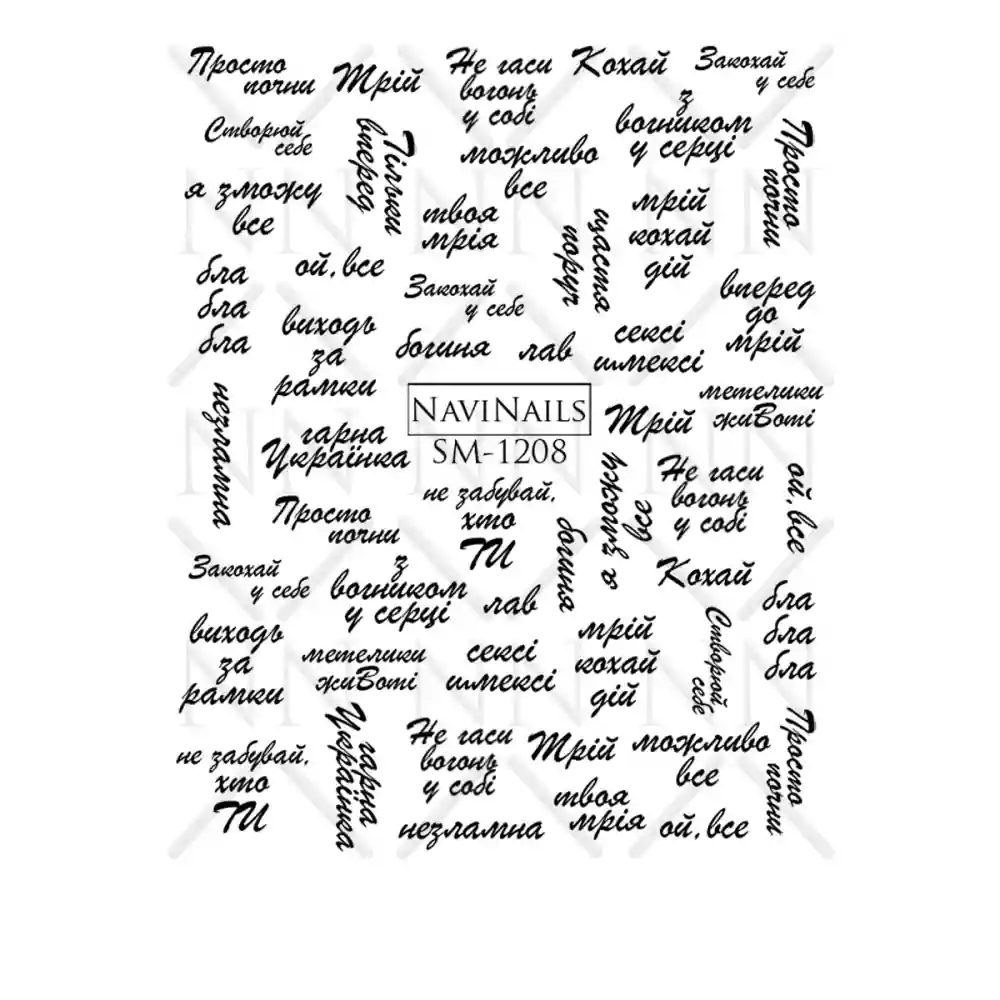 Просто
почни
Трій
Не гаси
вогонь
у собі
Кохай
Закохай
у себе
Створюй
себе
Тільки
вперед
можливо
все
з
вогником
у серці
Просто
почни
я зможу
все
твоя
мрія
щастя
поруч
мрій
кохай
дій
бла
бла
бла
ой, все
Закохай
у себе
вперед
до
мрій
виходь
за
рамки
богиня
лав
сексі
шмексі
незламна
гарна
Українка
NAVINAILS
SM-1208
Трій
метелики
жиВоті
не забувай,
хто
ТИ
я зможу
все
Не гаси
вогонь
у собі
ой, все
Просто
почни
богиня
Закохай
у себе
з
вогником
у серці
лав
Кохай
бла
бла
бла
виходь
за
рамки
метелики
жиВоті
сексі
шмексі
мрій
кохай
дій
Створюй
себе
не забувай,
хто
ТИ
гарна
Українка
Не гаси
вогонь
у собі
Трій
можливо
все
Просто
почни
незламна
твоя
мрія
ой, все